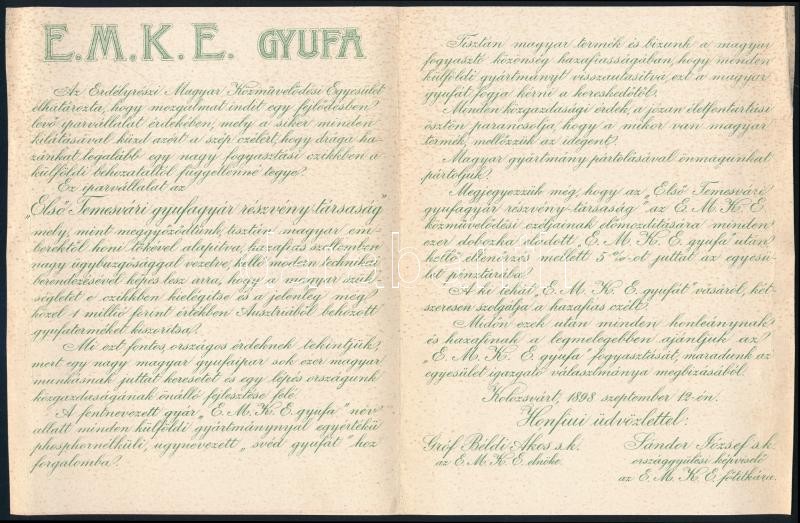 E.M.K.E. GYUFA
Az Erdélyrészi Magyar Közművelődési Egyesület
elhatározta, hogy mozgalmat indít egy fejlődésben
levő iparvállalat érdekében, mely a siker minden
kilátásával küzd azért a szép czélért, hogy drága ha-
zánkat legalább egy nagy fogyasztási czikkben a
külföldi behozataltól függetlenné tegye.
Ez iparvállalat az
„Első Temesvári gyufagyár részvény-társaság"
mely, mint meggyőződtünk, tisztán magyar em-
berektől honi tőkével alapítva, hazafias szellemben
nagy ügybuzgósággal vezetve, kellő modern technikai
berendezésével képes lesz arra, hogy a magyar szük-
ségletet e czikkben kielégítse és a jelenleg még
közel 1 millió forint értékben Ausztriából behozott
gyufaterméket kiszorítsa.
Mi ezt fontos, országos érdeknek tekintjük,
mert egy nagy magyar gyufaipar sok ezer magyar
munkásnak juttat keresetet és egy lépés országunk
közgazdaságának önálló fejlesztése felé.
A fentnevezett gyár „E.M.K.E. gyufa" név
allatt minden külföldi gyártmánynyal egyértékű
phosphornélküli, úgynevezett „svéd gyufát" hoz
forgalomba.
Tisztán magyar termék és bízunk a magyar
fogyasztó közönség hazafiasságában, hogy minden
külföldi gyártmányt visszautasítva, ezt a magyar
gyufát fogja kérni a kereskedőtől.
Minden közgazdasági érdek, a józan életfentartási
ösztön parancsolja, hogy a mikor van magyar
termék, mellőzzük az idegent.
Magyar gyártmány pártolásával önmagunkat
pártoljuk.
Megjegyezzük még, hogy az „Első Temesvári
gyufagyár részvény-társaság" az E.M.K.E.
közművelődési czéljainak előmozdítására minden
ezer dobozka eladott „E.M.K.E. gyufa" után
kellő ellenőrzés mellett 5 %-ot juttat az egyesü-
let pénztárába.
A ki tehát „E.M.K.E. gyufát" vásárol, két-
szeresen szolgálja a hazafias czélt.
Midőn ezek után minden honleánynak
és hazafinak a legmelegebben ajánljuk az
„E.M.K.E. gyufa" fogyasztását, maradunk az
egyesület igazgató választmánya megbízásából.
Kolozsvárt, 1898 szeptember 12-én.
Honfiui üdvözlettel:
Gróf Béldi Ákos s.k.
az E.M.K.E. elnöke.
Sándor József s.k.
országgyűlési képviselő
az E.M.K.E. főtitkára.